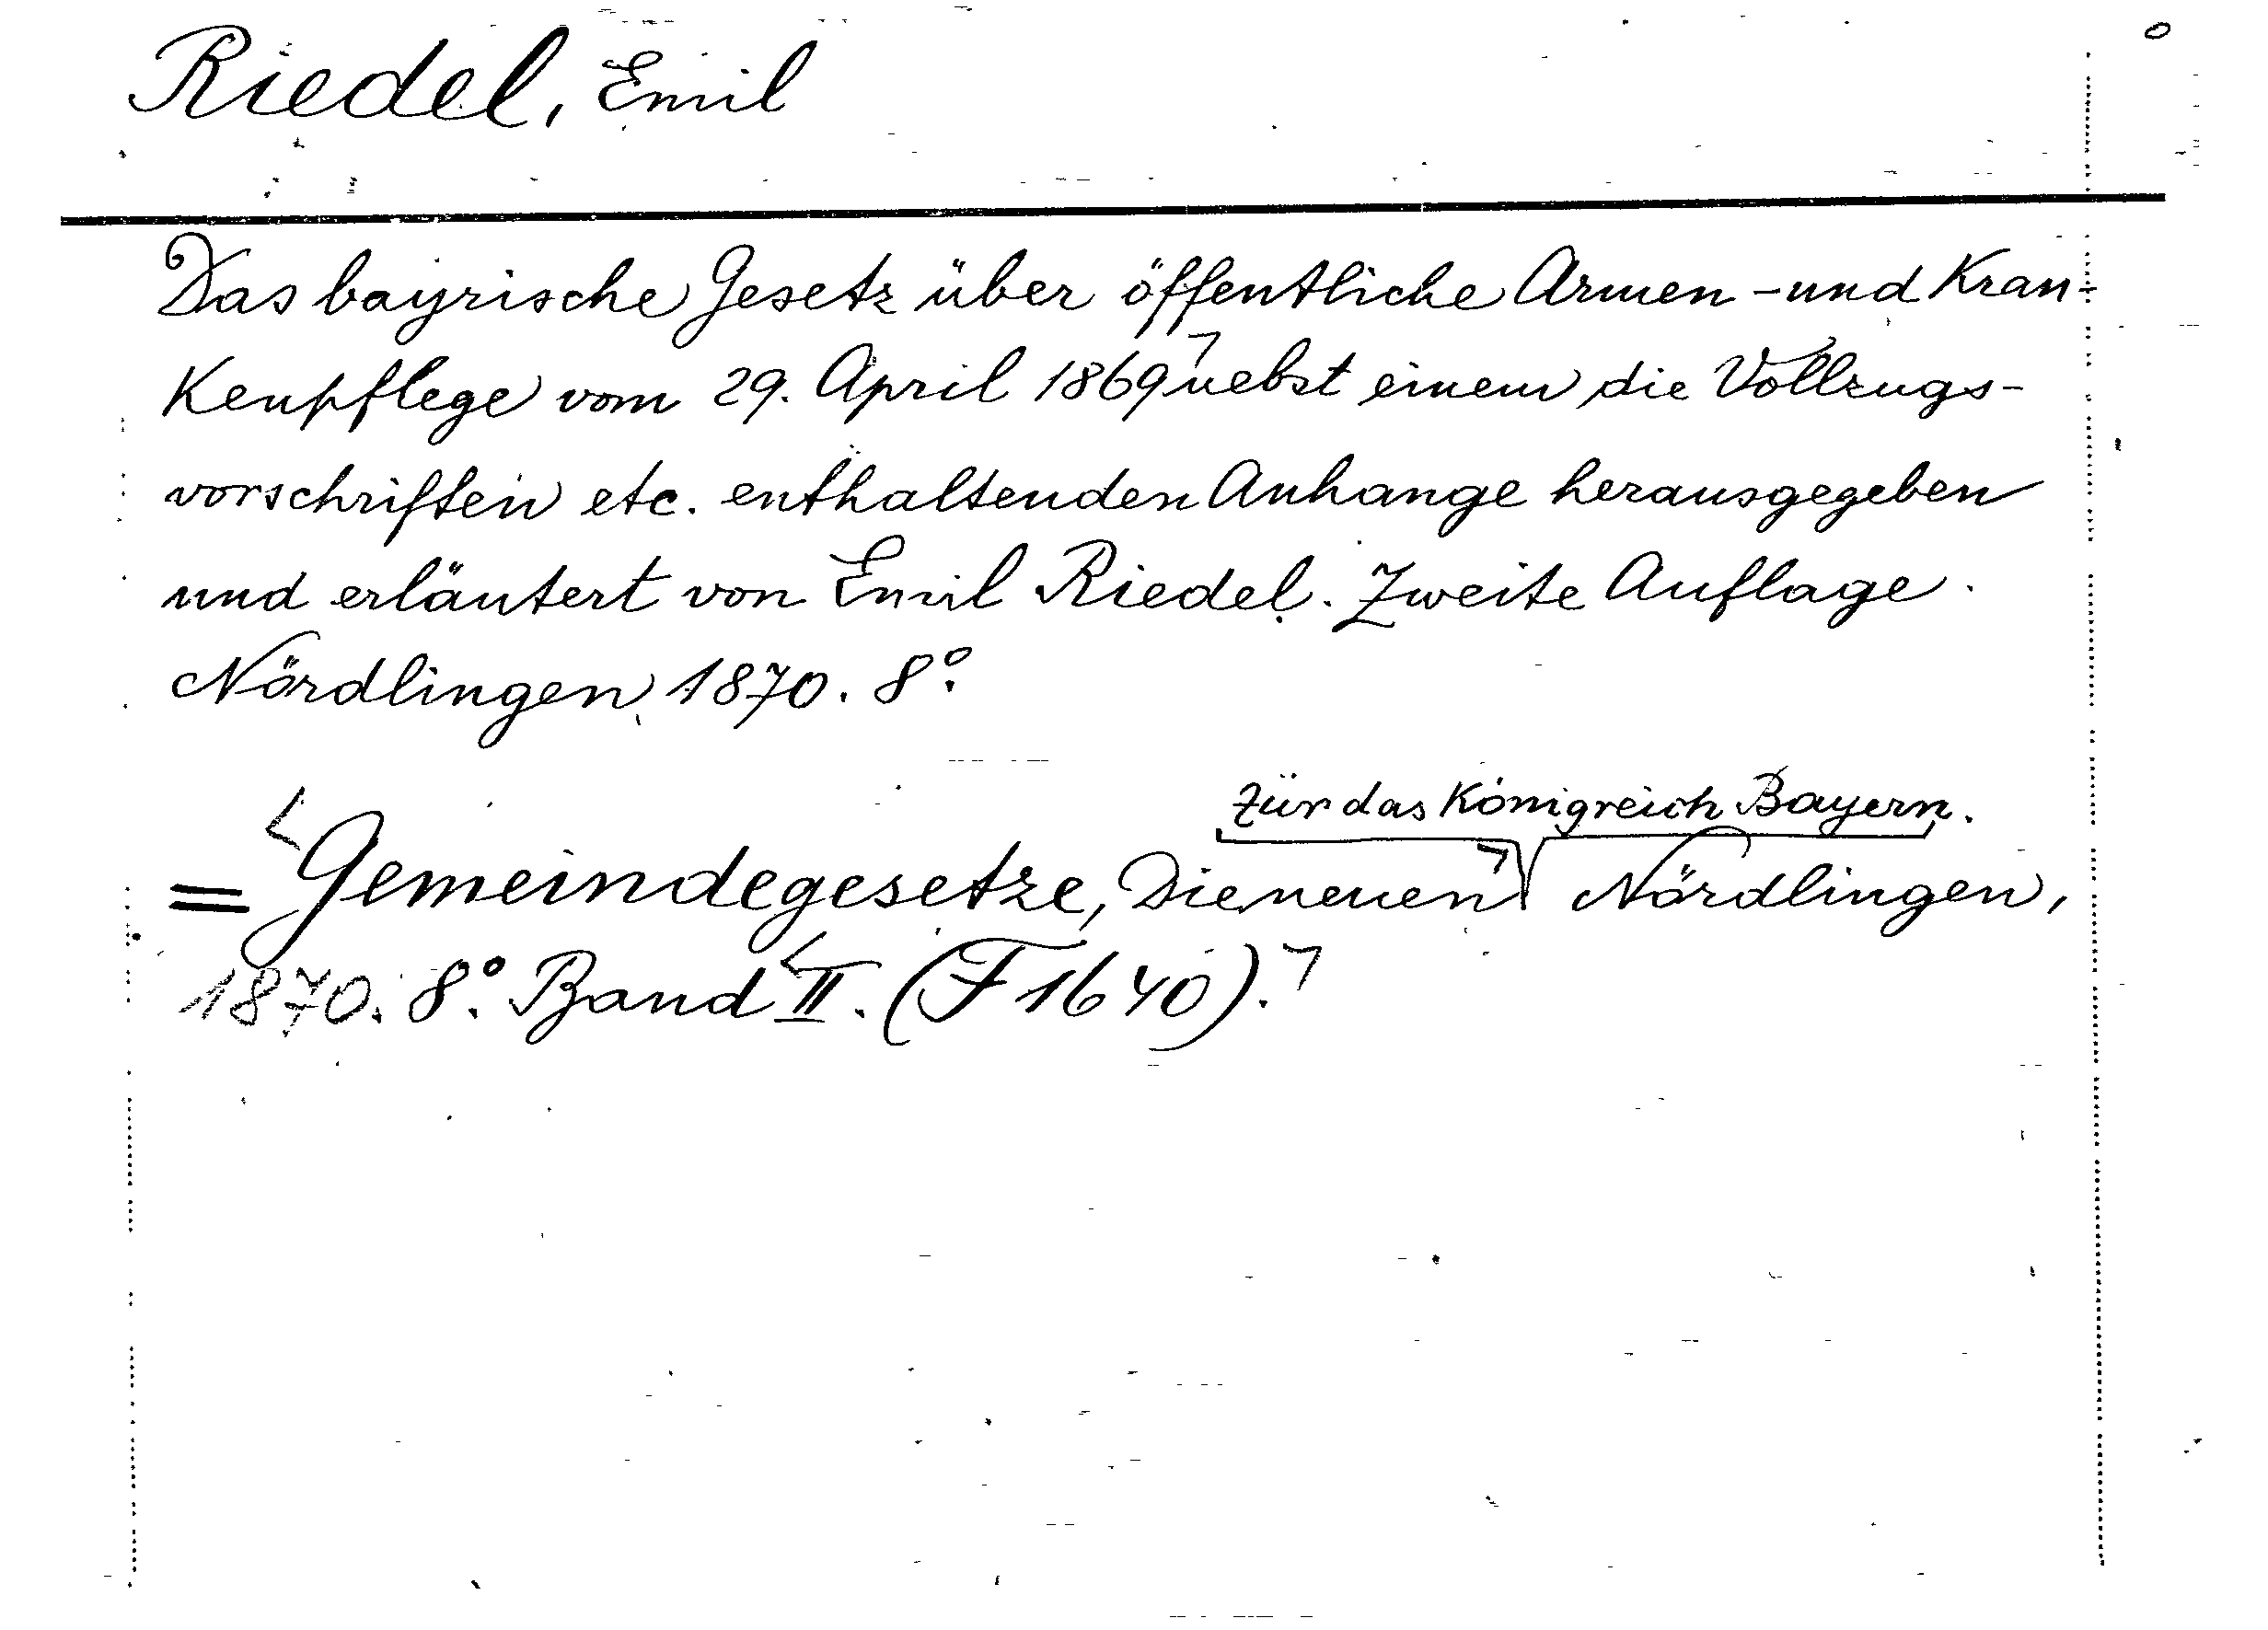 Riedel, Emil
Das bayrische Gesetz über öffentliche Armen- und Kran-
kenpflege vom 29. April 1869 nebst einem die Vollzugs-
vorschriften etc. enthaltenden Anhange herausgegeben
und erläutert von Emil Riedel. Zweite Auflage.
Nördlingen 1870. 8°.
für das Königreich Bayern.
= Gemeindegesetze, Die neuen Nördlingen,
1870. 8°. Band II. (F 1640).